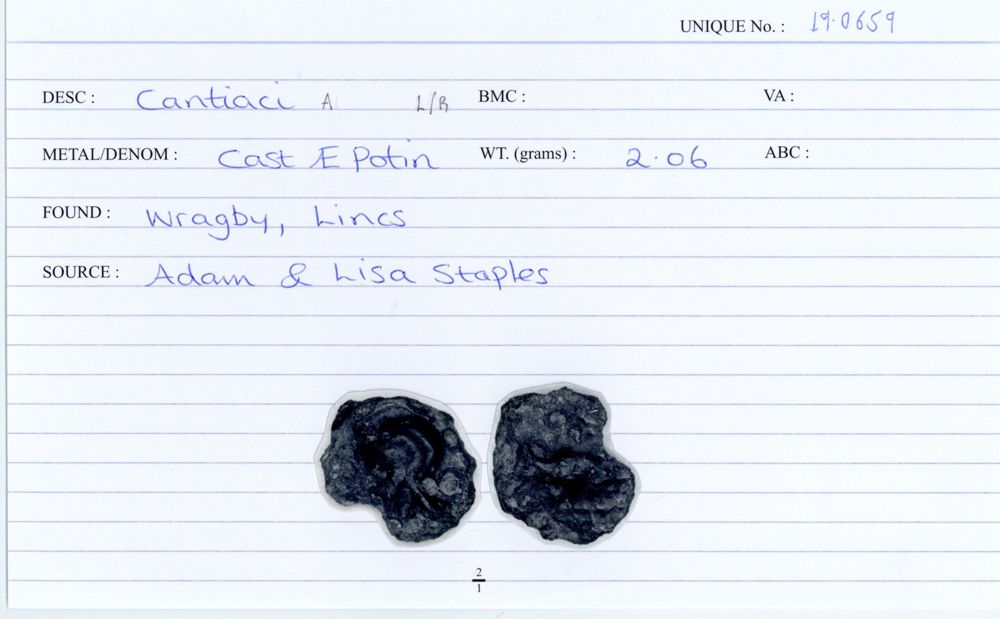 UNIQUE No. : 19.0659
DESC : Cantiaci A L/R BMC : VA :
METAL/DENOM : Cast Æ Potin WT. (grams) : 2.06 ABC :
FOUND : Wragby, Lincs
SOURCE : Adam & Lisa Staples
2
1